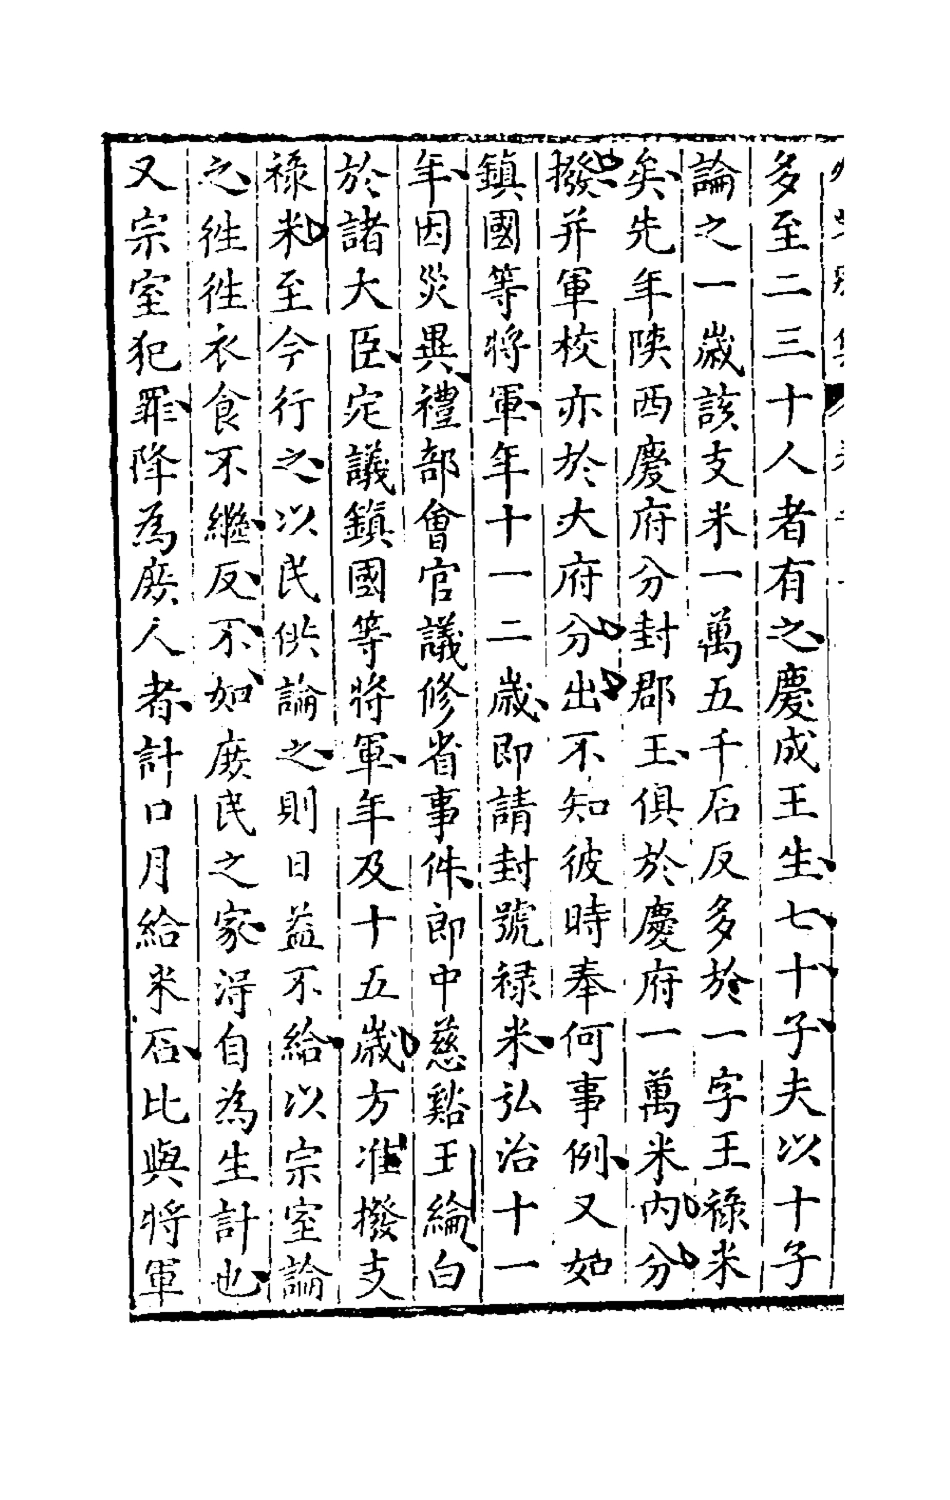 多至二三十人者有之慶成王生七十子夫以十子
論之一歲該支米一萬五千石反多於一字王祿米
矣先年陝西慶府分封郡王俱於慶府一萬米內分
撥并軍校亦於大府分出不知彼時奉何事例又如
鎮國等將軍年十一二歲即請封號祿米弘治十一
年因災異禮部會官議修省事件郎中慈谿王綸白
於諸大臣定議鎮國等將軍年及十五歲方准撥支
祿米至今行之以民供論之則日益不給以宗室論
之徃徃衣食不繼反不如庻民之家淂自為生計也
又宗室犯罪降為庻人者計口月給米石比與將軍